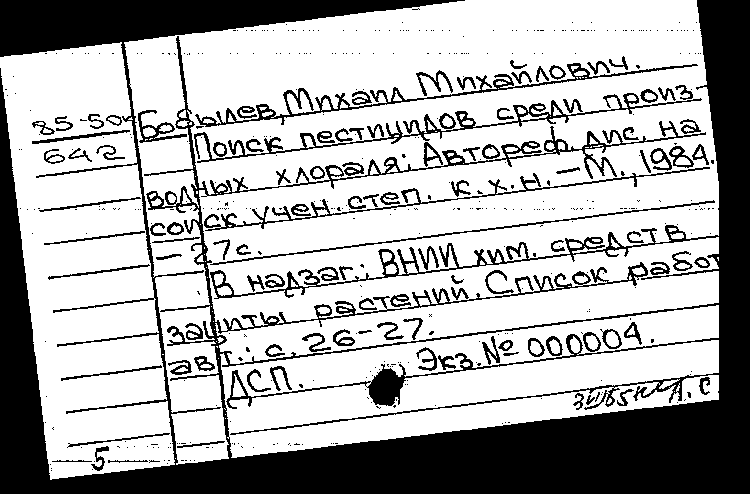 85-50к
642
Бобылев, Михаил Михайлович.
Поиск пестицидов среди произ-
водных хлораля: Автореф. дис. на
соиск. учен. степ. к.х.н. – М., 1984.
– 27с.
В надзаг.: ВНИИ хим. средств
защиты растений. Список работ
авт.: с. 26-27.
ДСП.
Экз. № 000004.
5